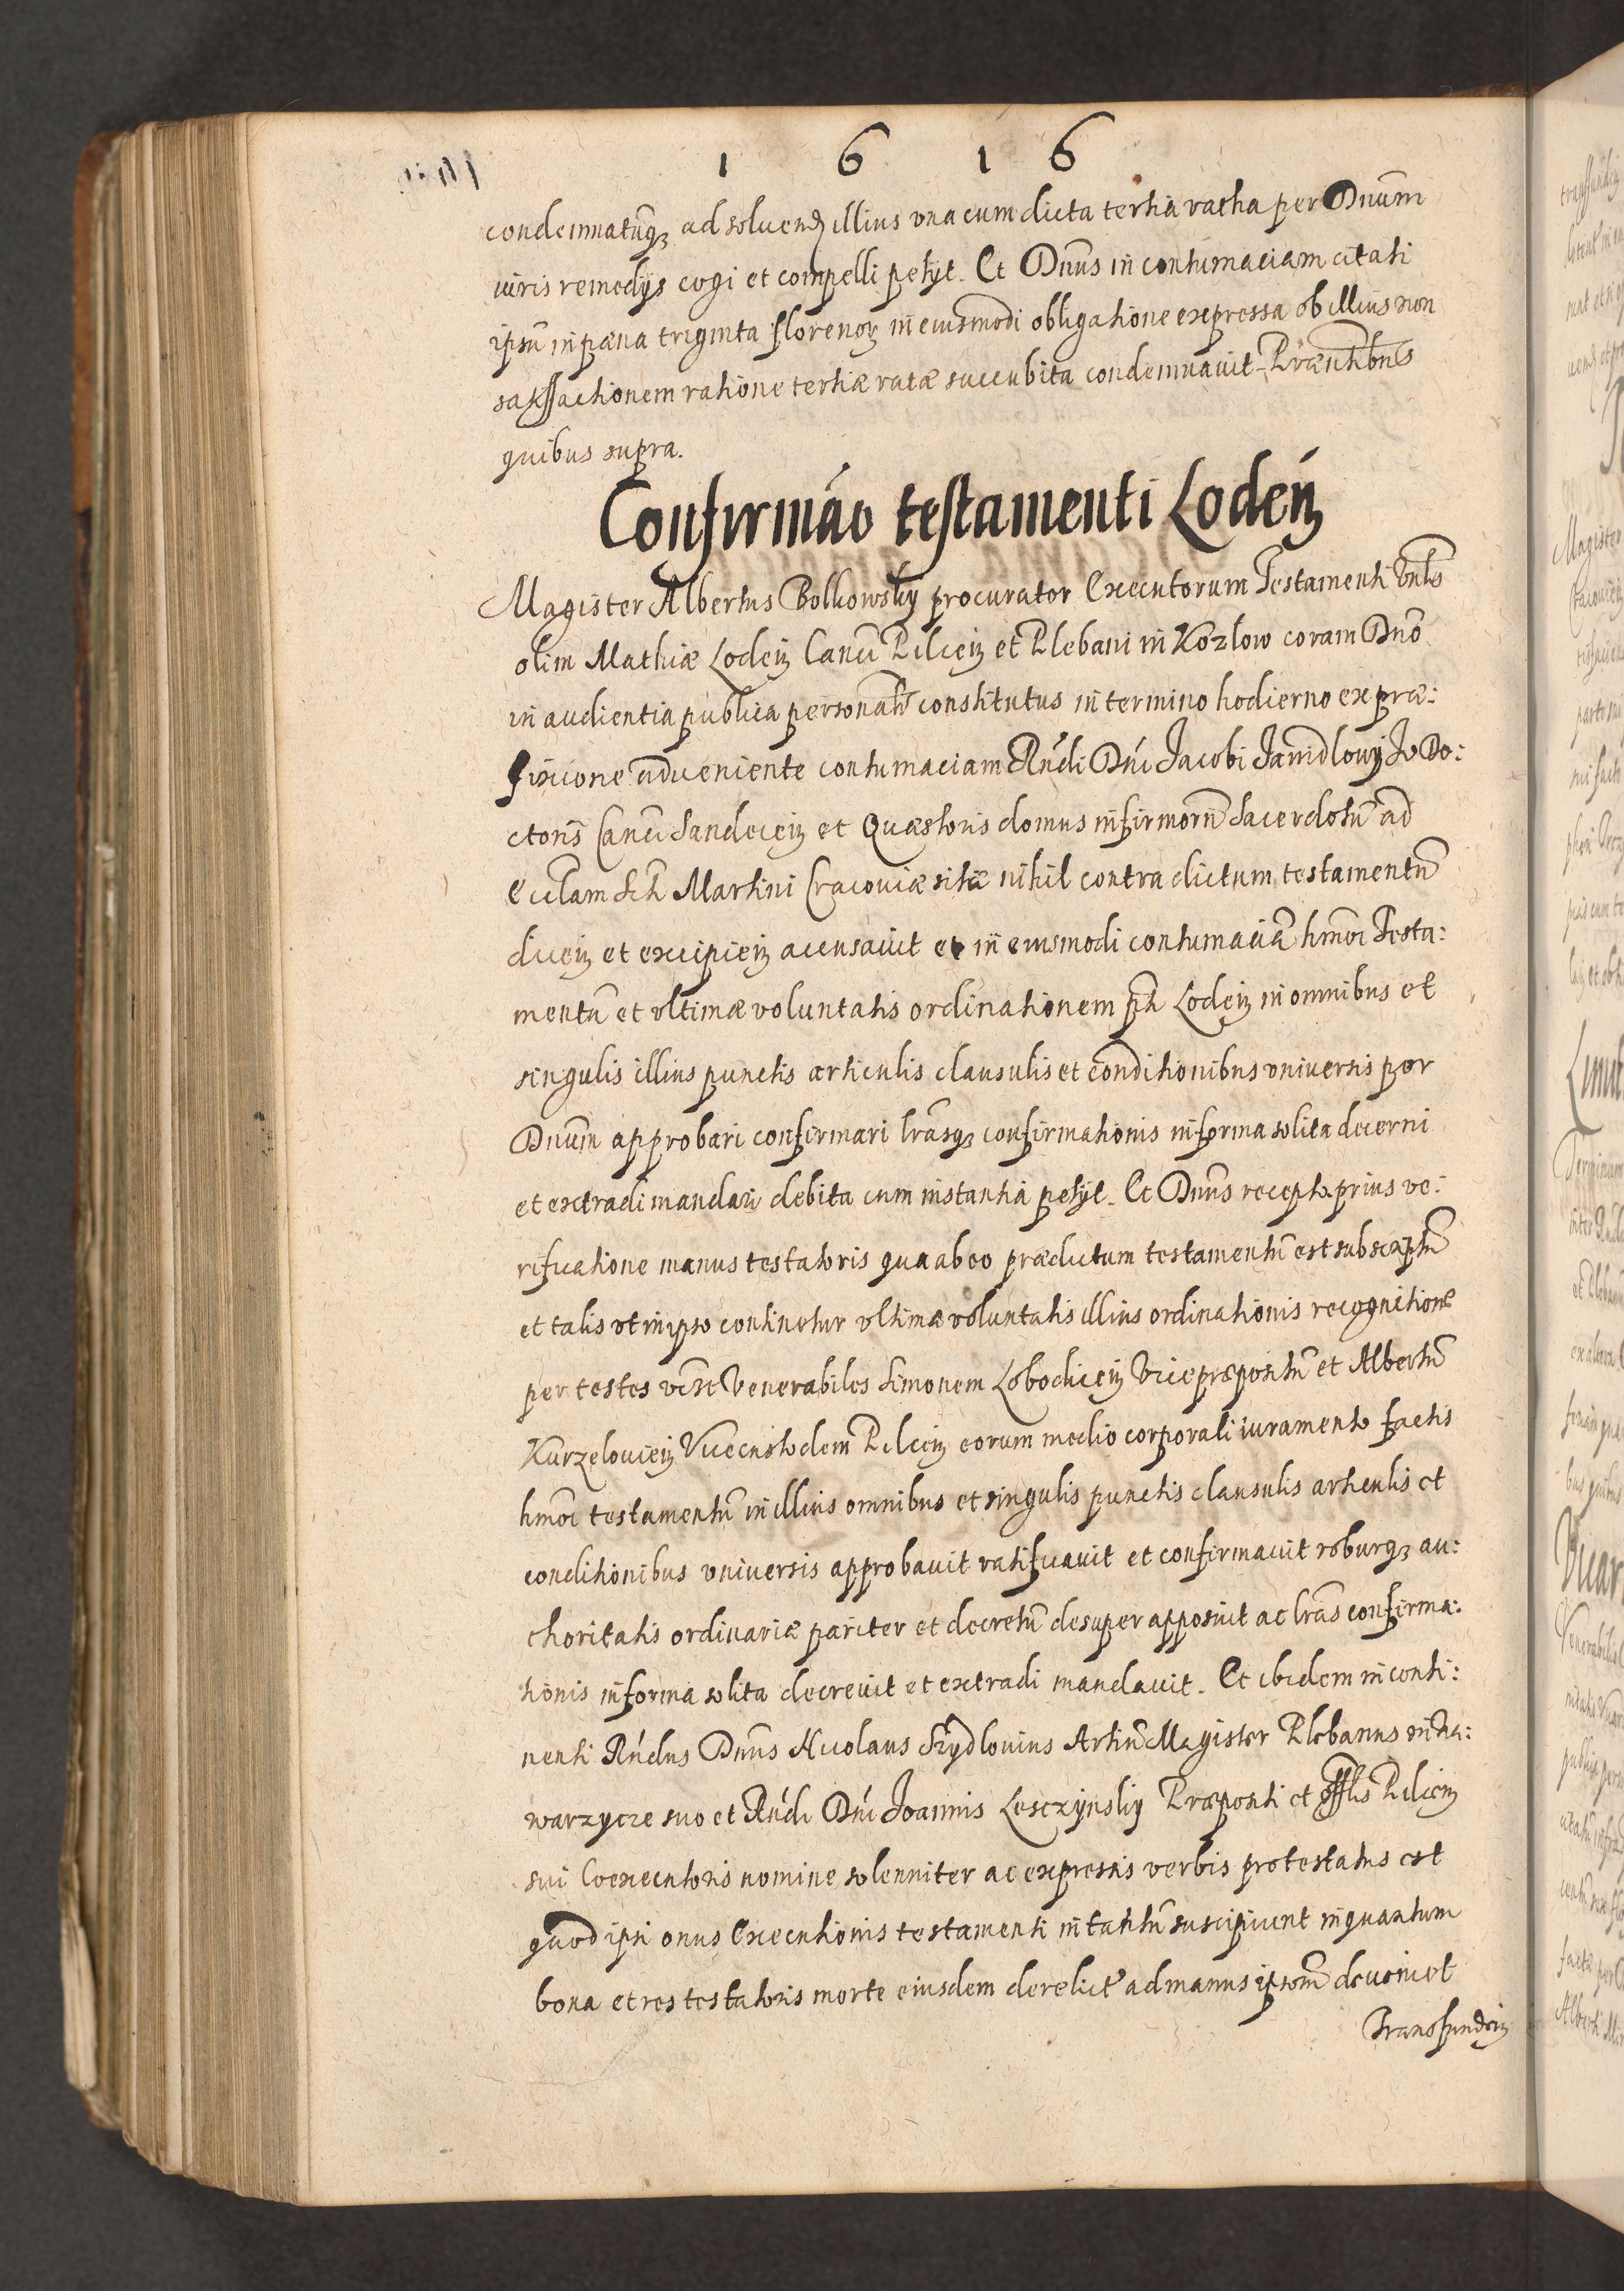 1 6 1 6
condemnatumq₃ ad soluend illius vna cum dicta tertia ratha per Dnum
iuris remedijs cogi et compelli petijt. Et Dnus in contumaciam citati
ipsu in pæna triginta florenor in eiusmodi obligatione expressa ob illius non
satisfactionem ratione tertiæ ratæ succubita condemnauit. Præntibus
quibus supra.
Confirmao testamenti Loden
Magister Albertus Bolkowsky procurator Executorum Testamenti Vnlis
olim Mathiæ Loden Canci Pilcen et Plebani in Kozlow coram Dno
in audientia publica personalr constitutus in termino hodierno ex præ:
fixione adveniente contumaciam Rndi Dni Jacobi Janidlowij JV Do:
ctoris Canci Sandecen et Quæstoris domus infirmoru Sacerdotu ad
Ecclam Scti Martini Cracouiæ sitæ nihil contra dictum testamentu
dicen et excipien accusauit et in eiusmodi contumacia hmoi Testa:
mentu et vltimæ voluntatis ordinationem pti Loden in omnibus et
singulis illius punctis articulis clausulis et conditionibus vniuersis per
Dnum approbari confirmari lrasq₃ confirmationis in forma solita decerni
et extradi mandari debita cum instantia petijt. Et Dnus recepta prius ve:
rificatione manus testatoris qua ab eo prædictum testamentu est subscriptu
et talis vt in ipso continetur vltimæ voluntatis illius ordinationis recognitione
per testes vcet Venerabiles Simonem Lobodicen Vicepræpositu et Albertu
Kurzelouien Vicecustodem Pilcen eorum medio corporali iuramento factis
hmoi testamentu in illius omnibus et singulis punctis clausulis articulis et
conditionibus vniuersis approbauit ratificauit et confirmauit roburq₃ au:
thoritatis ordinariæ pariter et decretu desuper apposuit ac lras confirma:
tionis in forma solita decreuit et extradi mandauit. Et ibidem in conti:
nenti Rndus Dnus Nicolaus Szydlouius Artiu Magister Plebanus in Na:
warzycze suo et Rndi Dni Joannis Lesczynsky Præpositi et Offlis Pilcen
sui Coexecutoris nomine solenniter ac expressis verbis protestatus est
quod ipsi onus Executionis testamenti in tantu suscipiunt inquantum
bona et res testatoris morte eiusdem derelict ad manus ipsoru devenient
Transfunden